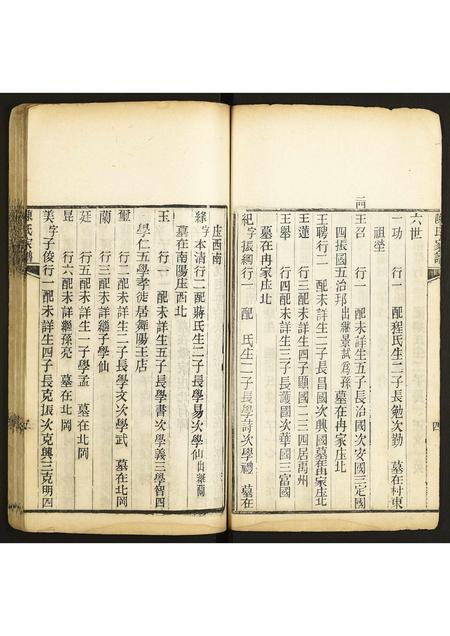 陳氏家譜
四
六世
一功 行一 配程氏生二子長勉次勤 墓在村東
祖塋
二門
王召 行一 配未詳生五子長治國次安國三定國
四振國五治邦出繼景試爲孫墓在冉家庄北
王聘行二 配未詳生二子長昌國次興國墓在冉家庄北
王蓮 行三配未詳生四子顯國二三四居禹州
王舉 行四配未詳生三子長護國次華國三富國
墓在冉家庄北
紀字振綱行一 配 氏生二子長學詩次學禮 墓在
庄西南
繹字本清行二配蔣氏生二子長學易次學仙出繼蘭
墓在南陽庄西北
玉 行一 配未詳生五子長學書次學義三學智四
學仁五學孝徙居舞陽王店
璽 行二配未詳生二子長學文次學武 墓在北岡
蘭 行三配未詳繼子學仙
廷 行五配未詳生一子學孟 墓在北岡
昆 行六配未詳繼孫亮 墓在北岡
美字子俊行一配未詳生四子長克振次克興三克明四
陳氏家譜